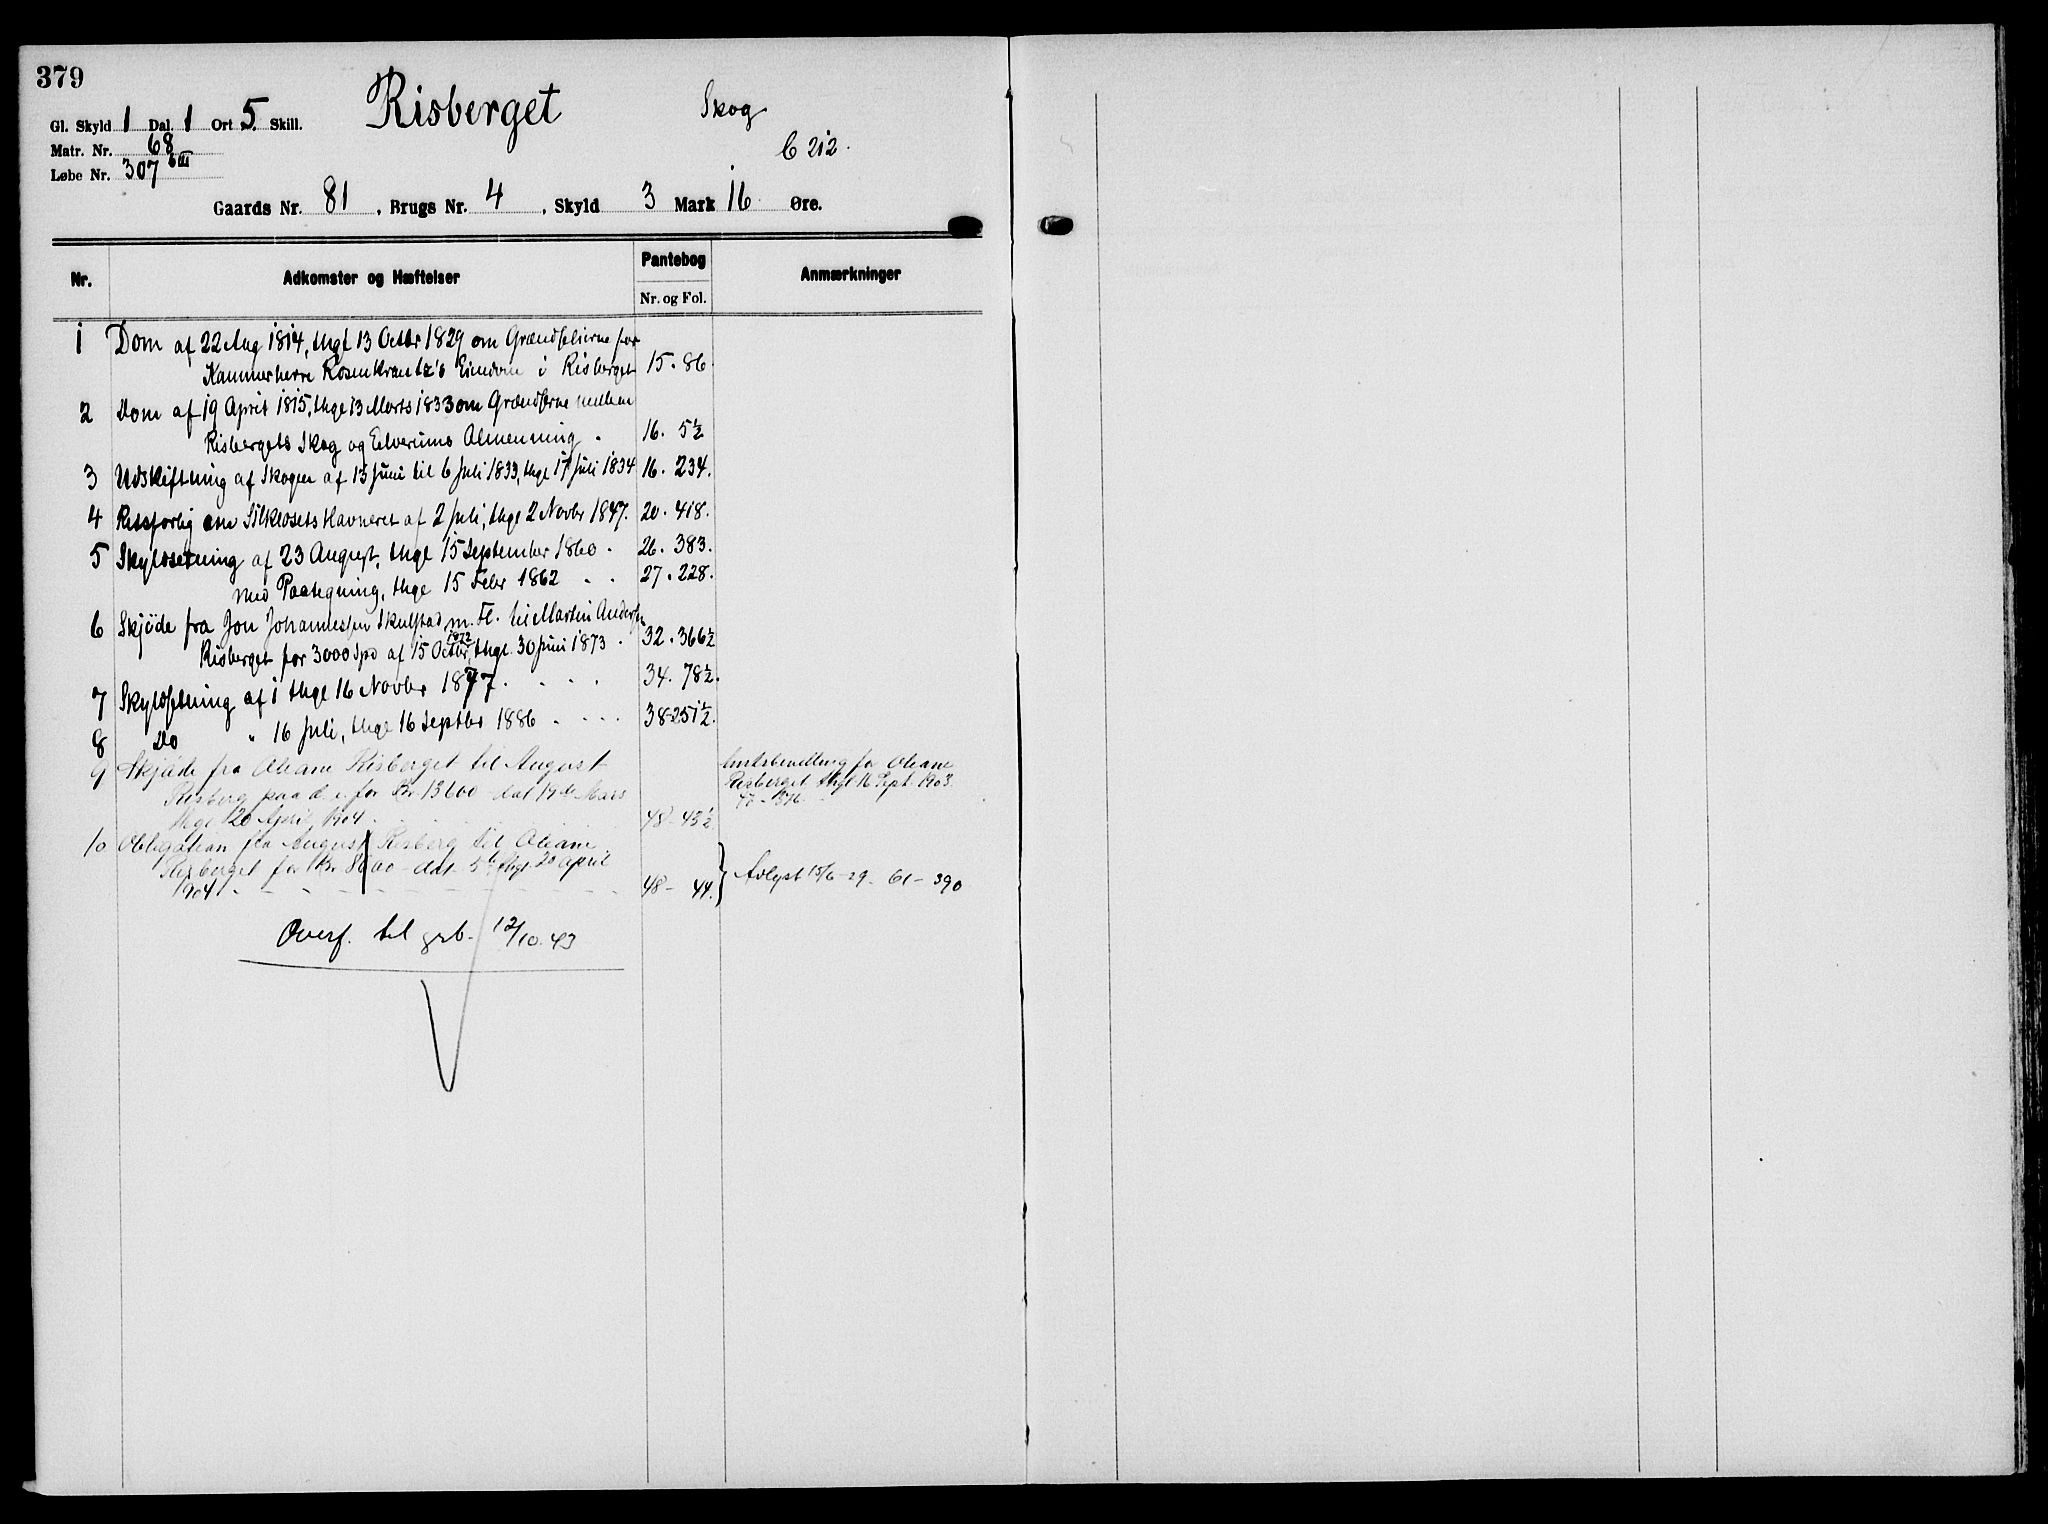 379
Risberget
Skog
Gl. Skyld 1 Dal. 1 Ort 5 Skill.
Matr. Nr. 68
C 212.
Løbe Nr. 307
Gaards Nr. 81, Brugs Nr. 4, Skyld 3 Mark 16 Øre.
Nr. Adkomster og Hæftelser Pantebog Anmærkninger
Nr. og Fol.
1 Dom af 22 Aug 1814, thgl 13 Octbr 1829 om Grændselinerne for
Kammerherre Rosenkrantz's Eiendom i Risberget 15. 86.
2 Dom af 19 April 1815, thgl 13 Marts 1833 om Grændserne mellem
Risbergets Skog og Elverums Almenning. 16. 5½
3 Udskiftning af Skogen af 13 Juni til 6 Juli 1833, thgl 17 Juli 1834 16. 234.
4 Retsforlig om Havneret af 2 Juli, thgl 2 Novbr 1847. 20. 418.
5 Skyldsetning af 23 August, thgl 15 September 1860. 26. 383.
med Paategning, thgl 15 Febr 1862 . . 27. 228.
6 Skjöde fra Jon Johannessen Skulstad m. Fl. til Martin Andersen
Risberget for 3000 Spd af 15 Octbr 1872, thgl. 30 Juni 1873 . 32. 366½
7 Skyldsetning af 1 thgl 16 Novbr 1877. . . . 34. 78½.
8 Do " 16 Juli, thgl 16 Septbr 1886 . . . . 38-251½.
9 Skjöde fra Oleane Risberget til August
Risberg paa d. e. for Kr. 13600 dat 17de Mars
thgl 20 April 1904. 48-43½
Amtsbevilling for Oleane
Risberget thgl 16 Sept. 1903.
47-376.
10 Obligation fra August Risberg til Oleane
Risberget for Kr 8600 dat. 5te thgl 20 April
1904 - - - - 48- 44. Avlyst 15/6-29. 61-390
Overf. til grb. 12/10.43